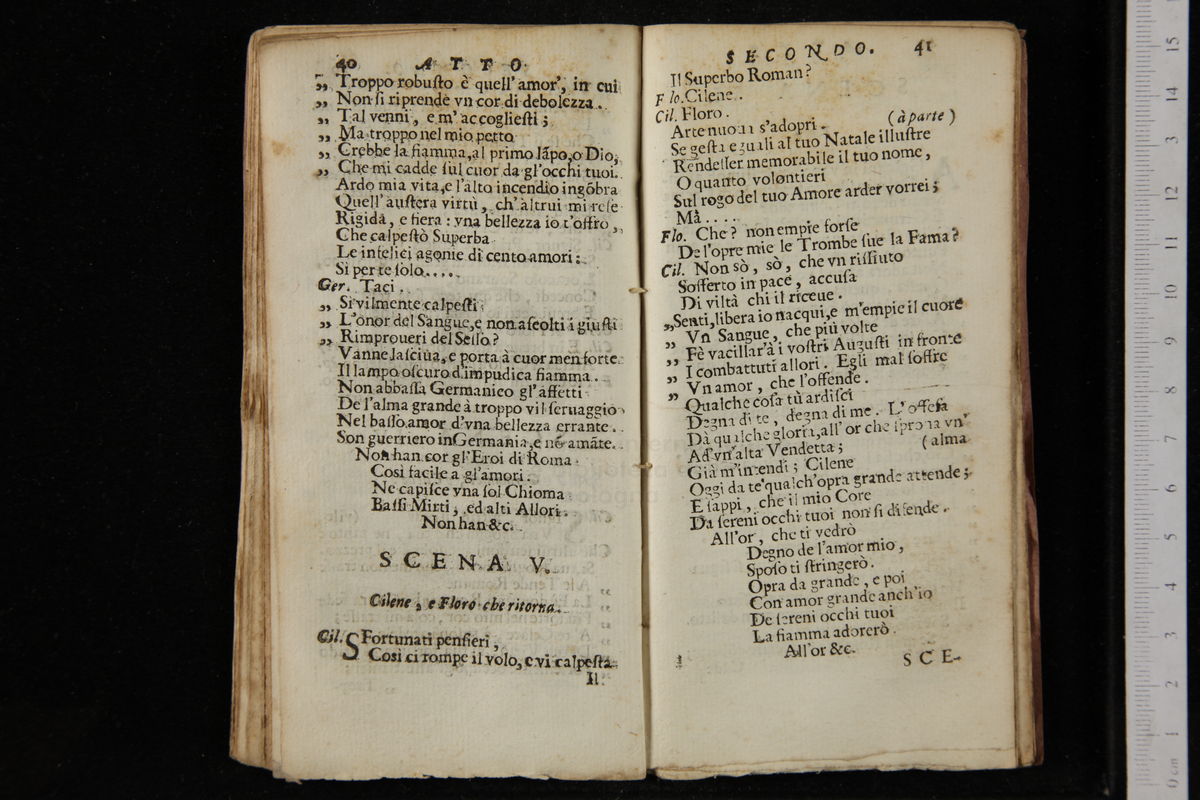 40 ATTO
„ Troppo robuſto è quell' amor', in cui
„ Non ſi riprende vn cor di debolezza.
„ Tal venni, e m' accoglieſti;
„ Ma troppo nel mio petto
„ Crebbe la fiamma, al primo lāpo, o Dio,
„ Che mi cadde ſul cuor da gl'occhi tuoi.
Ardo mia vita, e l'alto incendio ingōbra
Quell' auſtera virtù, ch' altrui mi reſe
Rigida, e fiera: vna bellezza io t'offro,
Che calpeſtò Superba
Le infelici agonie di cento amori:
Si per te ſolo....
Ger. Taci.
„ Si vilmente calpeſti
„ L'onor del Sangue, e non aſcolti i giuſti
„ Rimproueri del Seſſo?
Vanne laſciua, e porta à cuor men forte
Il lampo oſcuro d'impudica fiamma.
Non abbaſſa Germanico gl' affetti
De l'alma grande à troppo vil ſeruaggio
Nel baſſo amor d'vna bellezza errante.
Son guerriero in Germania, e nō amāte.
Non han cor gl'Eroi di Roma
Così facile a gl'amori.
Ne capiſce vna ſol Chioma
Baſſi Mirti, ed alti Allori.
Non han &c.
SCENA V.
Cilene, e Floro che ritorna.
Cil. SFortunati penſieri,
Così ci rompe il volo, e vi calpeſta
Il
SECONDO. 41
Il Superbo Roman?
Flo. Cilene.
Cil. Floro.
Arte nuoua s'adopri. (à parte)
Se geſta eguali al tuo Natale illuſtre
Rendeſſer memorabile il tuo nome,
O quanto volontieri
Sul rogo del tuo Amore arder vorrei;
Mà....
Flo. Che? non empie forſe
De l'opre mie le Trombe ſue la Fama?
Cil. Non sò, sò, che vn rifiuto
Sofferto in pace, accuſa
Di viltà chi il riceue.
„ Senti, libera io nacqui, e m'empie il cuore
„ Vn Sangue, che più volte
„ Fè vacillar à i voſtri Auguſti in fronte
„ I combattuti allori. Egli mal ſoffre
„ Vn amor, che l'offende.
Qualche coſa tù ardiſci
Degna di te, degna di me. L'offeſa
Dà qualche gloria, all' or che ſprona vn'
Ad vn'alta Vendetta; (alma
Già m'intendi; Cilene
Oggi da te qualch'opra grande attende;
E ſappi, che il mio Core
Da ſereni occhi tuoi non ſi difende.
All'or, che ti vedrò
Degno de l'amor mio,
Spoſo ti ſtringerò.
Opra da grande, e poi
Con amor grande anch'io
De ſereni occhi tuoi
La fiamma adorerò.
All'or &c.
SCE-